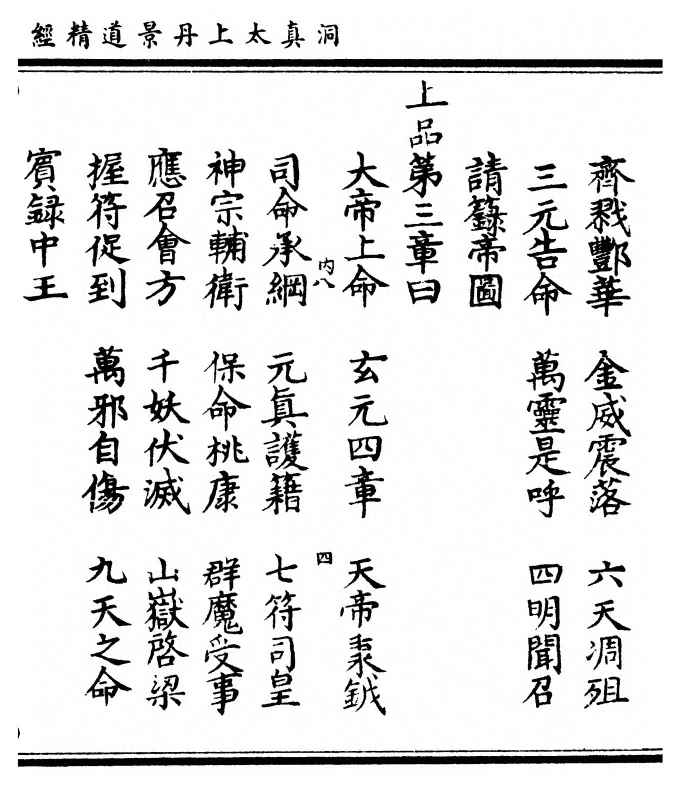 洞真太上丹景道精經
齊戮酆華 金威震落 六天凋殂
三元告命 萬靈是呼 四明聞召
請籙帝圖
上品第三章曰
大帝上命 玄元四章 天帝秉鉞
内八 四
司命承綱 元眞護籍 七符司皇
神宗輔衛 保命桃康 群魔受事
應召會方 千妖伏滅 山嶽啓梁
握符促到 萬邪自傷 九天之命
賓録中王